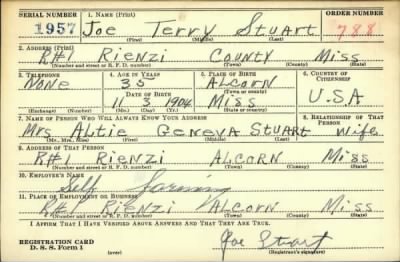 SERIAL NUMBER 1. NAME (Print) ORDER NUMBER
1957 Joe Terry Stuart 788
(First) (Middle) (Last)
2. ADDRESS (Print)
R#1 Rienzi County Miss
(Number and street or R. F. D. number) (Town) (County) (State)
3. TELEPHONE 4. AGE IN YEARS 5. PLACE OF BIRTH 6. COUNTRY OF CITIZENSHIP
None 35 Alcorn
DATE OF BIRTH (Town or county)
11 3 1904 Miss U.S.A
(Exchange) (Number) (Mo.) (Day) (Yr.) (State or country)
7. NAME OF PERSON WHO WILL ALWAYS KNOW YOUR ADDRESS 8. RELATIONSHIP OF THAT PERSON
Mrs Altie Geneva Stuart Wife
(Mr., Mrs., Miss) (First) (Middle) (Last)
9. ADDRESS OF THAT PERSON
R#1 Rienzi Alcorn Miss
(Number and street or R. F. D. number) (Town) (County) (State)
10. EMPLOYER'S NAME
Self Farming
11. PLACE OF EMPLOYMENT OR BUSINESS
R#1 Rienzi Alcorn Miss
(Number and street or R. F. D. number) (Town) (County) (State)
I AFFIRM THAT I HAVE VERIFIED ABOVE ANSWERS AND THAT THEY ARE TRUE.
REGISTRATION CARD Joe Stuart
D. S. S. Form 1 (over) (Registrant's signature)